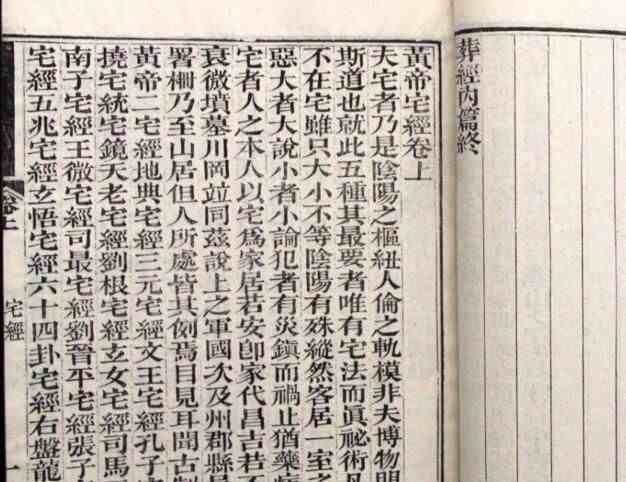 葬經內篇終
黃帝宅經卷上
夫宅者乃是陰陽之樞紐人倫之軌模非夫博物明
斯道也就此五種其最要者唯有宅法而眞祕術凡
不在宅雖只大小不等陰陽有殊縱然客居一室之
惡大者大說小者小論犯者有災鎮而禍止猶藥病
宅者人之本人以宅爲家居若安卽家代昌吉若不
衰微墳墓川岡竝同茲說上之軍國次及州郡縣邑
署柵乃至山居但人所處皆其例焉目見耳聞古制
黃帝二宅經地典宅經三元宅經文王宅經孔子
撓宅統宅鏡天老宅經劉根宅經玄女宅經司馬
南子宅經王微宅經司最宅經劉晉平宅經張子
宅經五兆宅經玄悟宅經六十四卦宅經右盤龍
卷上
宅經
一